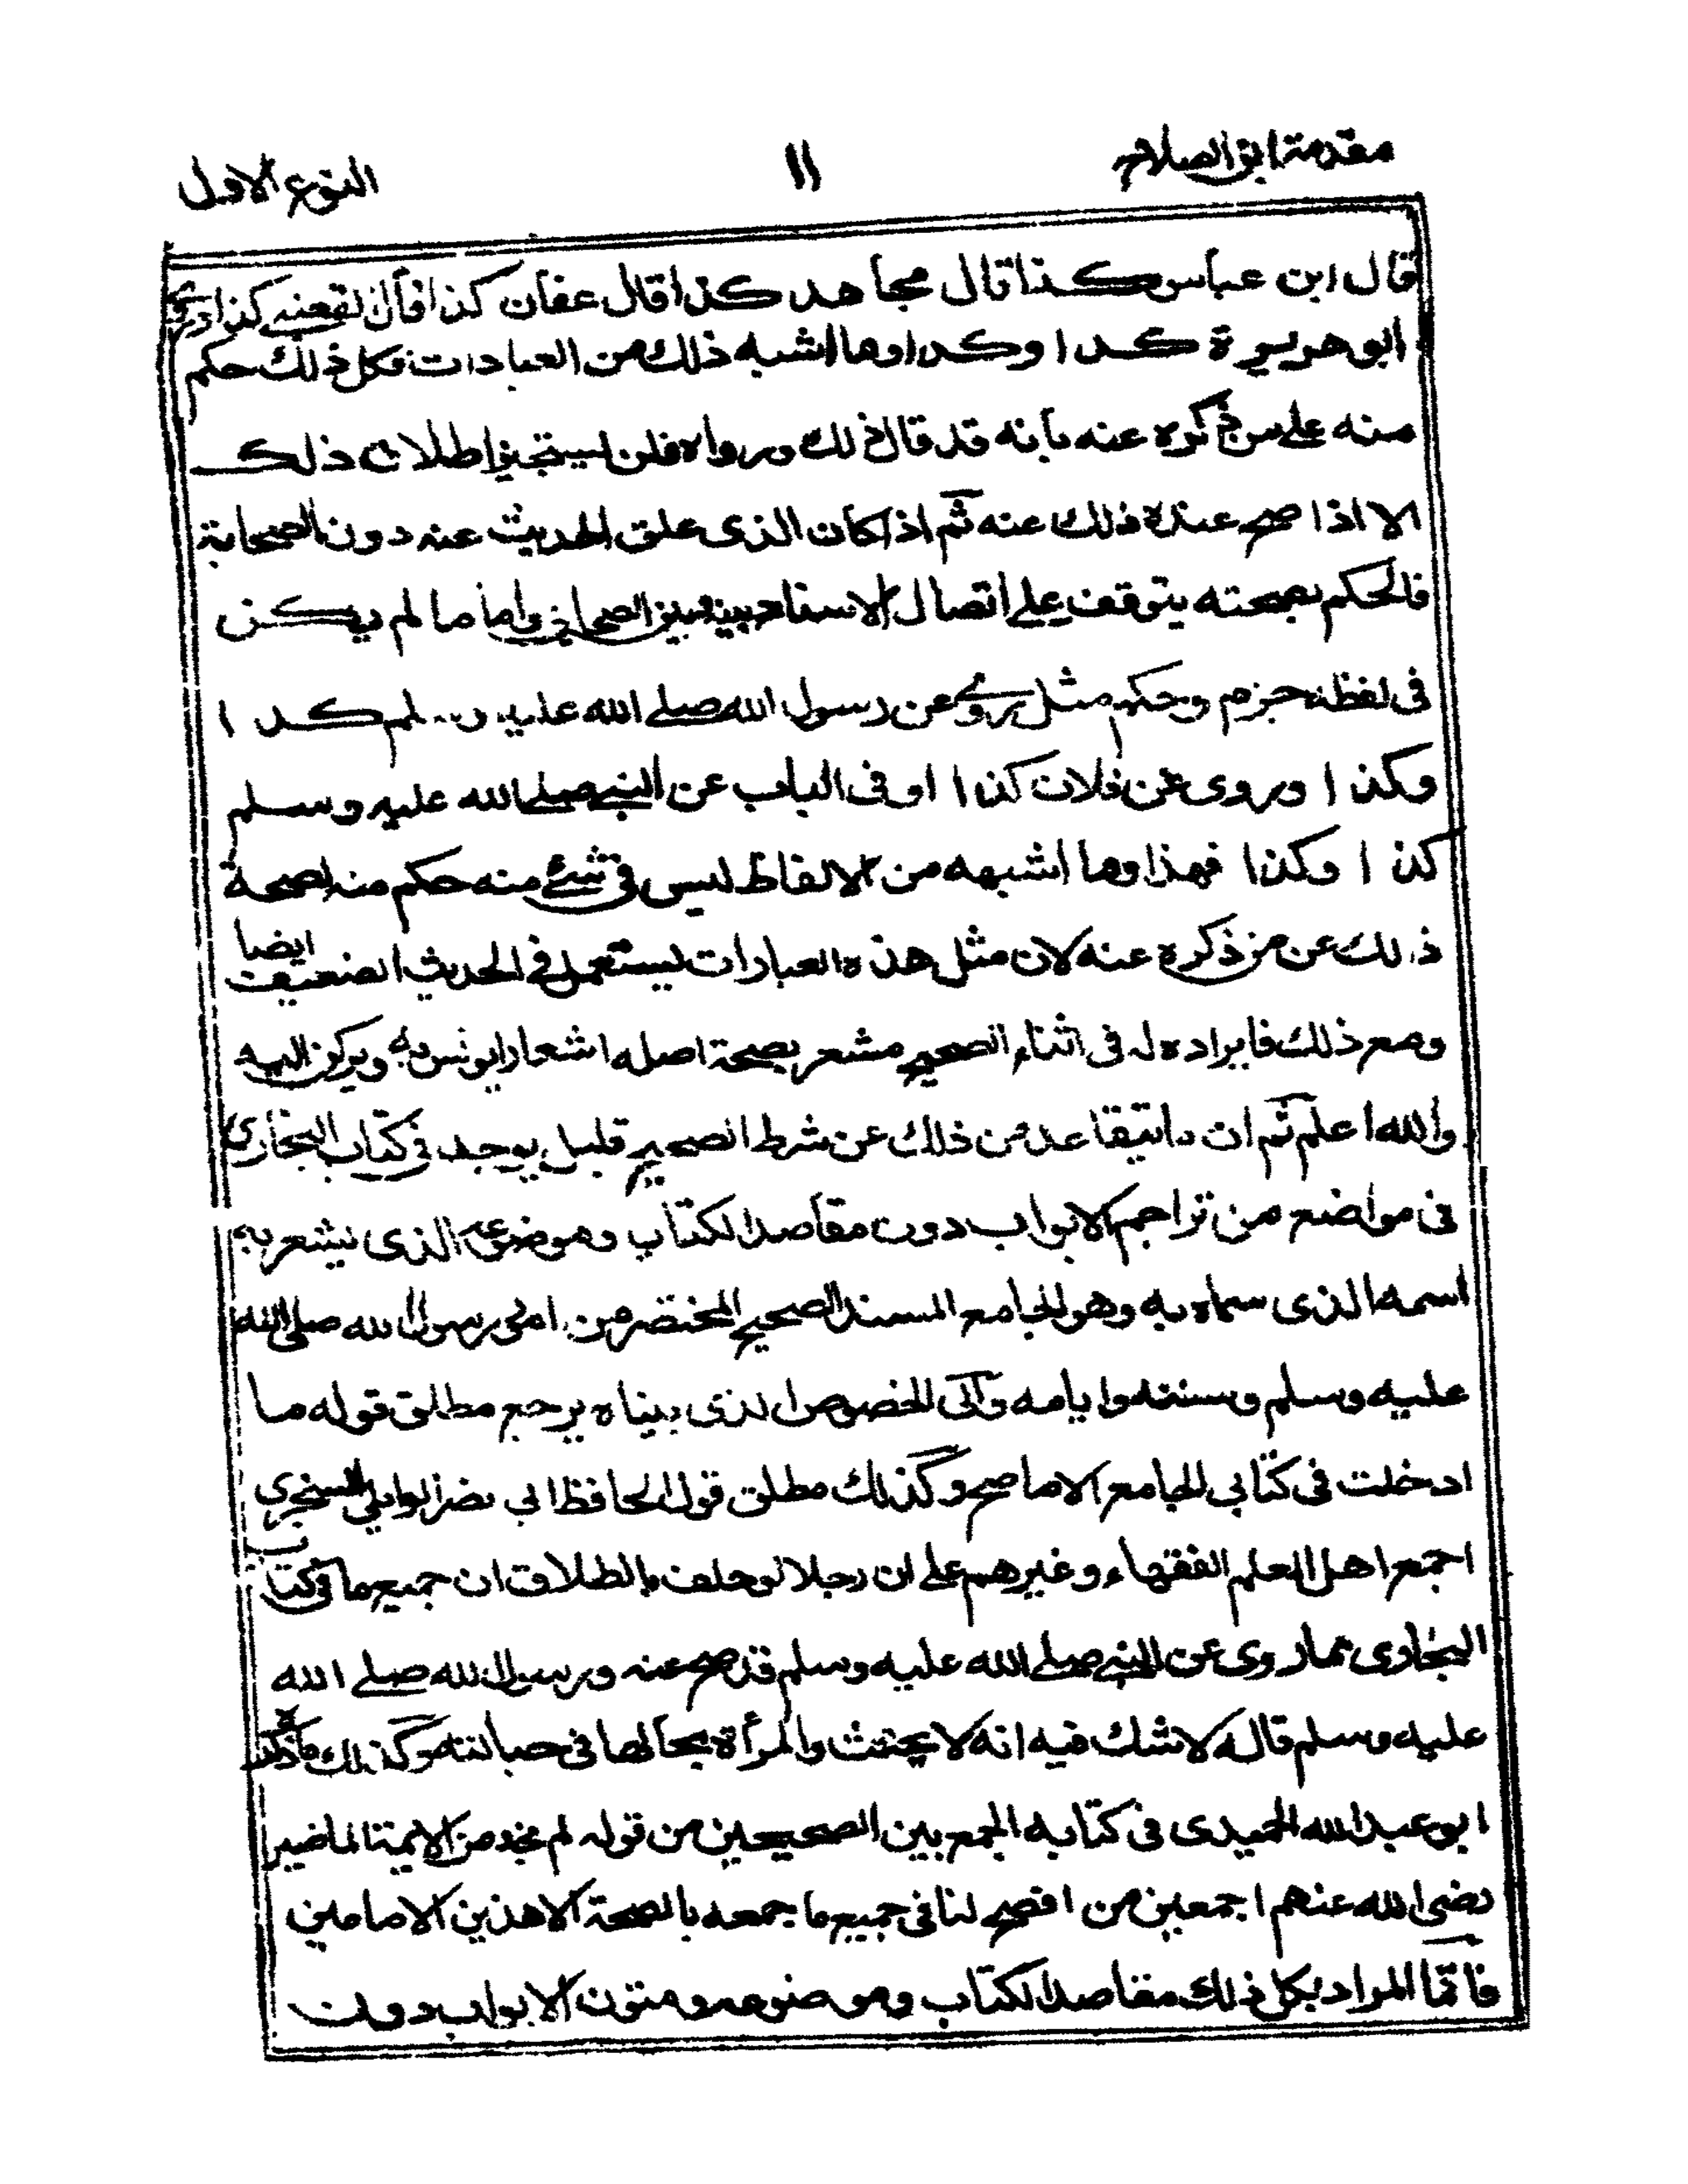 مقدمة ابن الصلاح
١١
النوع الاول
قال ابن عباس كذا قال مجاهد كذا قال عفان كذا قال القعنبي كذا روى
ابو هريرة كذا وكذا وما اشبه ذلك من العبارات فكل ذلك حكم
منه على من ذكره عنه بانه قد قال ذلك ورواه فلن يستجيز اطلاق ذلك
الا اذا صح عنده ذلك عنه ثم اذا كان الذى علق الحديث عنه دون الصحابة
فالحكم بصحته يتوقف على اتصال الاسناد بينه وبين الصحابي واما ما لم يكن
فى لفظه جزم وحكم مثل روى عن رسول الله صلى الله عليه وسلم كذا
وكذا وروى عن فلان كذا او فى الباب عن النبي صلى الله عليه وسلم
كذا وكذا فهذا وما اشبهه من الالفاظ ليس فى شئ منه حكم منه بصحة
ذلك عن من ذكره عنه لان مثل هذه العبارات يستعمل فى الحديث الضعيف ايضا
ومع ذلك فايراده له فى اثناء الصحيح مشعر بصحة اصله اشعارا يونس به ويركن اليه
والله اعلم ثم ان ما يتقاعد من ذلك عن شرط الصحيح قليل يوجد فى كتاب البخارى
فى مواضع من تراجم الابواب دون مقاصد الكتاب وموضوعه الذى يشعر به
اسمه الذى سماه به وهو الجامع المسند الصحيح المختصر من امور رسول الله صلى الله
عليه وسلم وسننه وايامه والى الخصوص الذى بيناه يرجع مطلق قوله ما
ادخلت فى كتابي الجامع الا ما صح وكذلك مطلق قول الحافظ ابي نصر الوايلي السجزى
اجمع اهل العلم الفقهاء وغيرهم على ان رجلا لو حلف بالطلاق ان جميع ما فى كتاب
البخارى مما روى عن النبي صلى الله عليه وسلم قد صح عنه ورسول الله صلى الله
عليه وسلم قاله لا شك فيه انه لا يحنث والمرأة بحالها فى حبالته وكذلك ما ذكره
ابو عبد الله الحميدى فى كتابه الجمع بين الصحيحين من قوله لم نجد من الايمة الماضين
رضى الله عنهم اجمعين من افصح لنا فى جميع ما جمعه بالصحة الا هذين الامامين
فانما المراد بكل ذلك مقاصد الكتاب وموضوعه ومتون الابواب دون